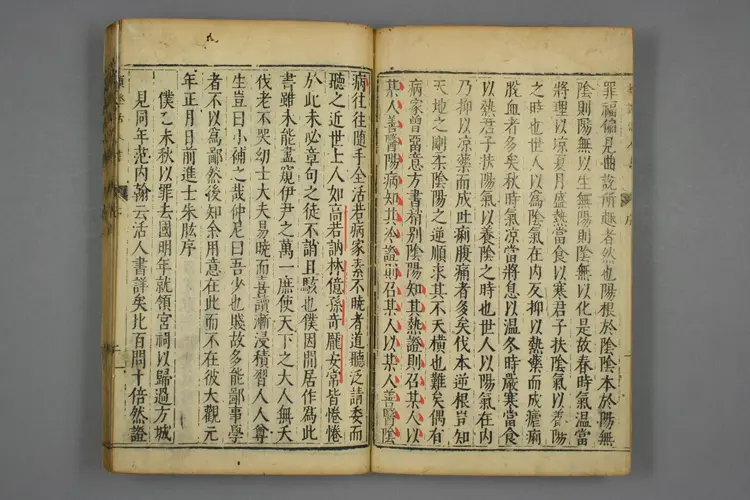 罪福偏見曲說所趣者然也陽根於陰陰本於陽無
陰則陽無以生無陽則陰無以化是故春時氣溫當
將理以凉夏月盛熱當食以寒君子扶陰氣以養陽
之時也世人以為陰氣在内反抑以熱藥而成瘧痢
脫血者多矣秋時氣凉當將息以温冬時嚴寒當食
以熱君子扶陽氣以養陰之時也世人以陽氣在内
乃抑以凉藥而成吐痢腹痛者多矣伐本逆根豈知
天地之剛柔陰陽之逆順求其不夭橫也難矣偶有
病家曾留意方書稍别陰陽知其熱證則召某人以
某人善醫陽病知其冷證則召某人以某人善醫陰
病往往隨手全活若病家素不曉者道聽泛請委而
聽之近世士人如高若訥林億孫奇龐安常皆惓惓
於此未必章句之徒不誚且駭也僕因閒居作為此
書雖未能盡窺伊尹之萬一庶使天下之大人無夭
伐老不哭幼士大夫易曉而喜讀漸浸積習人人尊
生豈曰小補之哉仲尼曰吾少也賤故多能鄙事學
者不以為鄙然後知余用意在此而不在彼大觀元
年正月日前進士朱肱序
僕乙未秋以罪去國明年就領宮祠以歸過方城
見同年范内翰云活人書詳矣比百問十倍然證